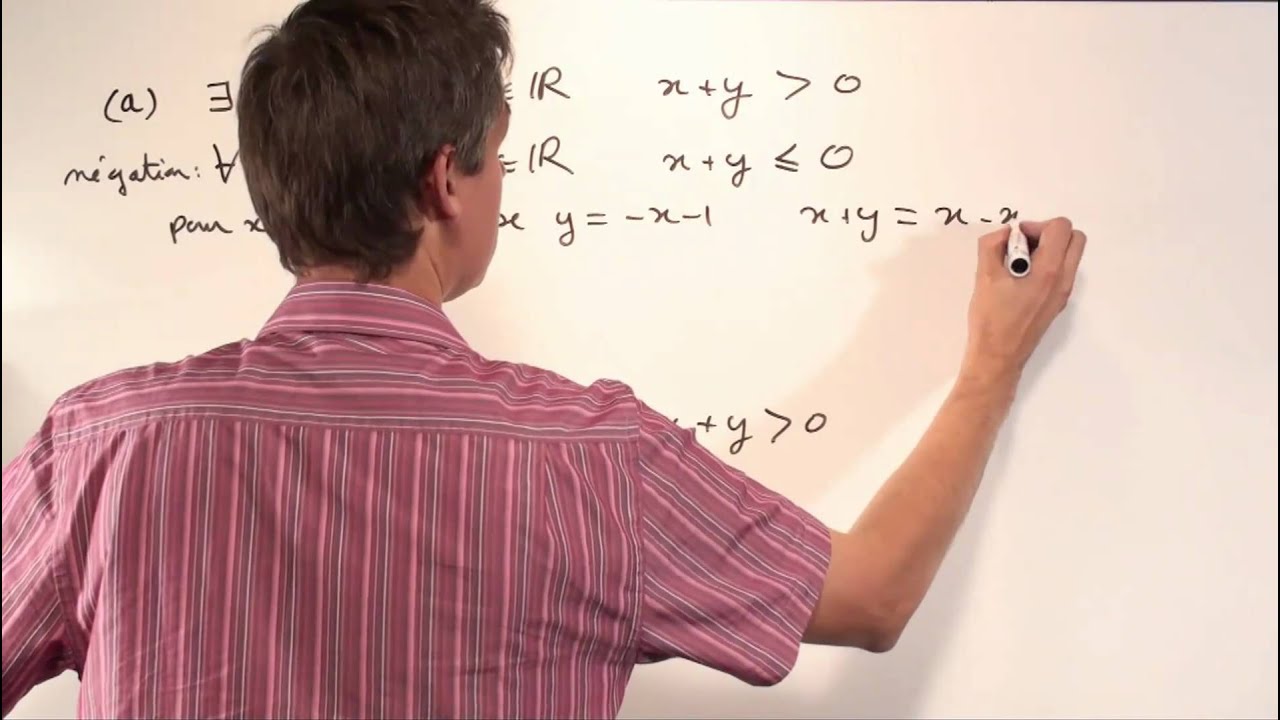 (a) ∃ ∈ ℝ x + y > 0
négation: ∀ ∈ ℝ x + y ⩽ 0
pour x y = -x-1 x+y = x - x
+ y > 0